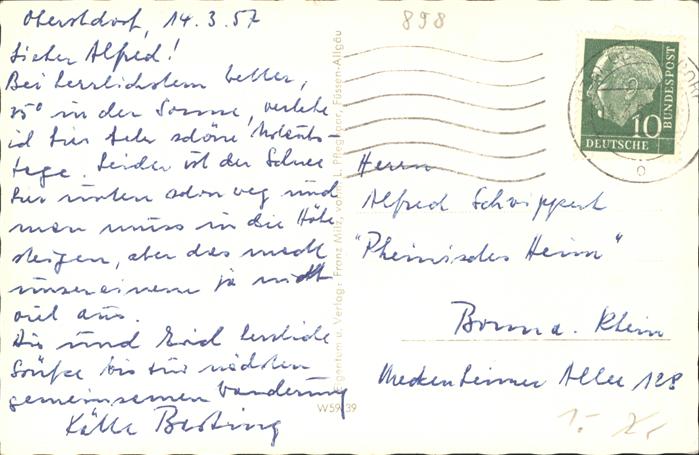 Oberstdorf, 14.3.57
Lieber Alfred!
Bei herrlichstem Wetter,
25° in der Sonne, verlebe
ich hier sehr schöne Urlaubs-
tage. Leider ist der Schnee
hier unten schon weg und
man muss in die Höhe
steigen, aber das macht
unsereinem ja nicht
viel aus.
Dir und Euch herzliche
Grüße bis zur nächsten
gemeinsamen Wanderung
898
DEUTSCHE
BUNDESPOST
10
Herrn
Alfred Schvippert
"Rheinisches Heim"
Bonn a. Rhein
Meckenheimer Allee 128
Eigentum u. Verlag: Franz Milz, vorm. L. Pfleghaar, Füssen-Allgäu
W 59/39